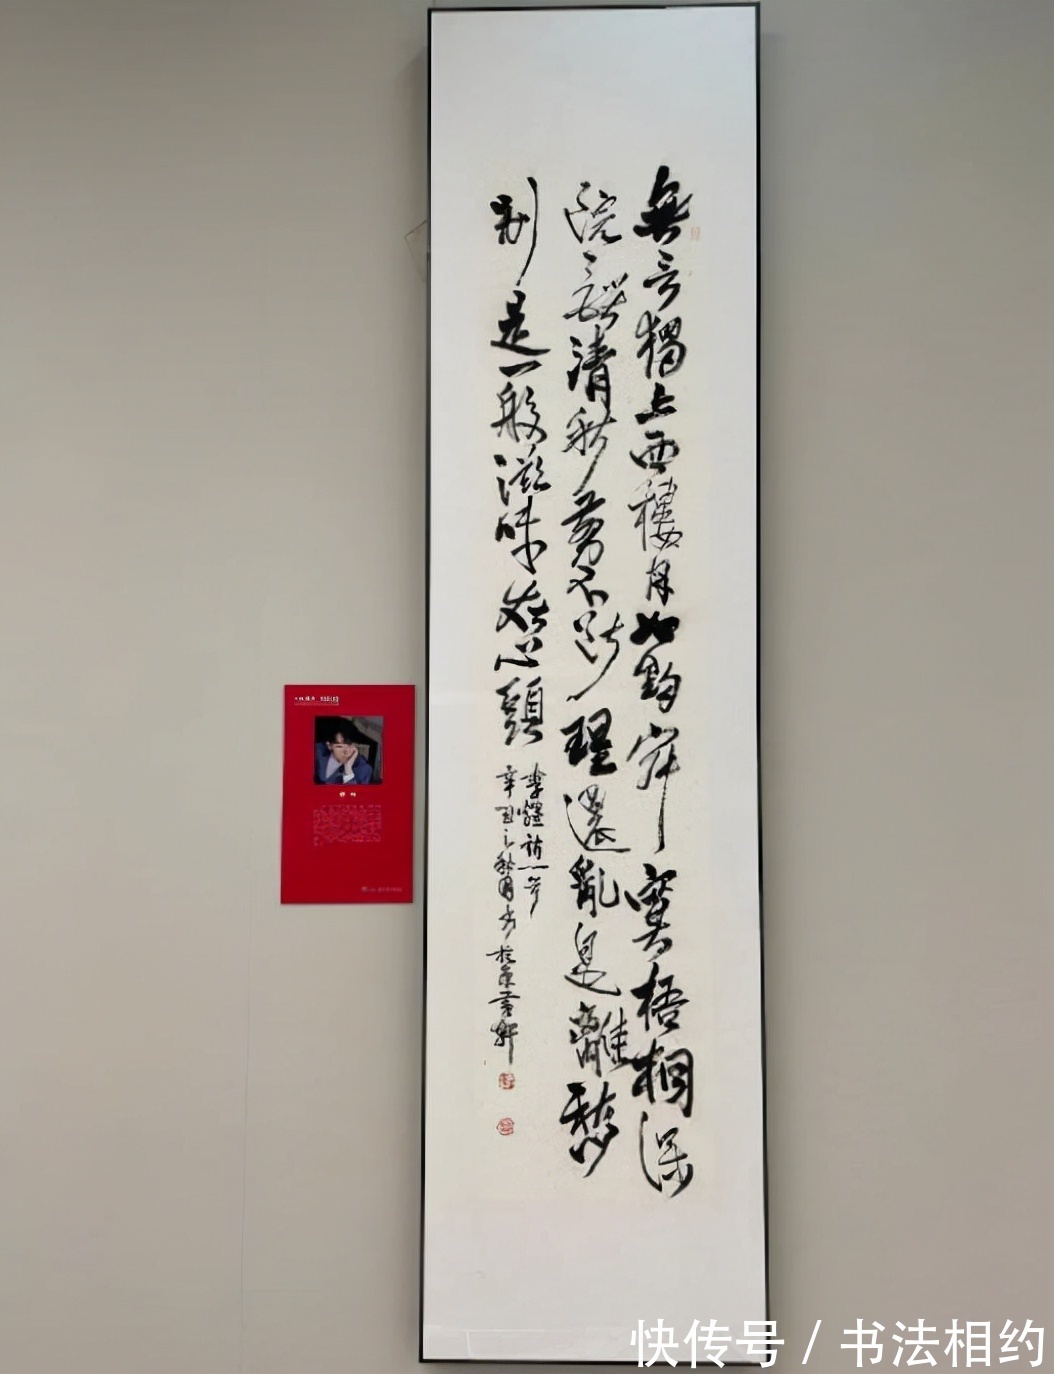 無言獨上西樓月如鈎寂寞梧桐深
院鎖清秋剪不斷理還亂是離愁
別是一般滋味在心頭
李煜詞一首
辛丑之秋月書於京軒
快传号 / 书法相约